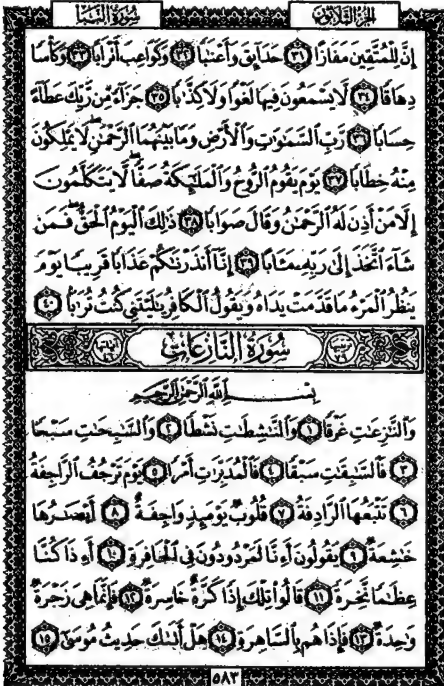 سُورَةُ النَّبَإِ
الجُزْءُ الثَّلَاثُونَ
إِنَّ لِلْمُتَّقِينَ مَفَازًا ٣١ حَدَآئِقَ وَأَعْنَٰبًا ٣٢ وَكَوَاعِبَ أَتْرَابًا ٣٣ وَكَأْسًا
دِهَاقًا ٣٤ لَّا يَسْمَعُونَ فِيهَا لَغْوًا وَلَا كِذَّٰبًا ٣٥ جَزَآءً مِّن رَّبِّكَ عَطَآءً
حِسَابًا ٣٦ رَّبِّ ٱلسَّمَٰوَٰتِ وَٱلْأَرْضِ وَمَا بَيْنَهُمَا ٱلرَّحْمَٰنِ ۖ لَا يَمْلِكُونَ
مِنْهُ خِطَابًا ٣٧ يَوْمَ يَقُومُ ٱلرُّوحُ وَٱلْمَلَٰٓئِكَةُ صَفًّا ۖ لَّا يَتَكَلَّمُونَ
إِلَّا مَنْ أَذِنَ لَهُ ٱلرَّحْمَٰنُ وَقَالَ صَوَابًا ٣٨ ذَٰلِكَ ٱلْيَوْمُ ٱلْحَقُّ ۖ فَمَن
شَآءَ ٱتَّخَذَ إِلَىٰ رَبِّهِۦ مَـَٔابًا ٣٩ إِنَّآ أَنذَرْنَٰكُمْ عَذَابًا قَرِيبًا يَوْمَ
يَنظُرُ ٱلْمَرْءُ مَا قَدَّمَتْ يَدَاهُ وَيَقُولُ ٱلْكَافِرُ يَٰلَيْتَنِى كُنتُ تُرَٰبًۢا ٤٠
سُورَةُ النَّازِعَاتِ
بِسْمِ ٱللَّهِ ٱلرَّحْمَٰنِ ٱلرَّحِيمِ
وَٱلنَّٰزِعَٰتِ غَرْقًا ١ وَٱلنَّٰشِطَٰتِ نَشْطًا ٢ وَٱلسَّٰبِحَٰتِ سَبْحًا
٣ فَٱلسَّٰبِقَٰتِ سَبْقًا ٤ فَٱلْمُدَبِّرَٰتِ أَمْرًا ٥ يَوْمَ تَرْجُفُ ٱلرَّاجِفَةُ
٦ تَتْبَعُهَا ٱلرَّادِفَةُ ٧ قُلُوبٌ يَوْمَئِذٍ وَاجِفَةٌ ٨ أَبْصَٰرُهَا
خَٰشِعَةٌ ٩ يَقُولُونَ أَءِنَّا لَمَرْدُودُونَ فِى ٱلْحَافِرَةِ ١٠ أَءِذَا كُنَّا
عِظَٰمًا نَّخِرَةً ١١ قَالُوا۟ تِلْكَ إِذًا كَرَّةٌ خَاسِرَةٌ ١٢ فَإِنَّمَا هِىَ زَجْرَةٌ
وَٰحِدَةٌ ١٣ فَإِذَا هُم بِٱلسَّاهِرَةِ ١٤ هَلْ أَتَىٰكَ حَدِيثُ مُوسَىٰٓ ١٥
٥٨٣